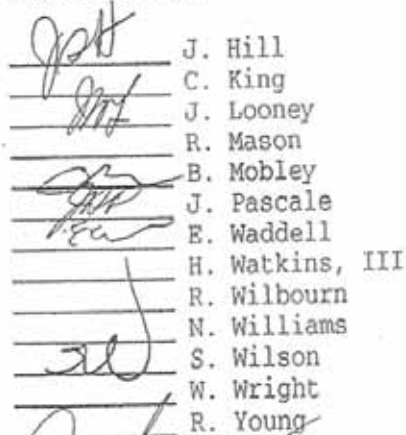 JBH J. Hill
C. King
J. Looney
R. Mason
B. Mobley
J. Pascale
E. Waddell
H. Watkins, III
R. Wilbourn
N. Williams
S. Wilson
W. Wright
R. Young